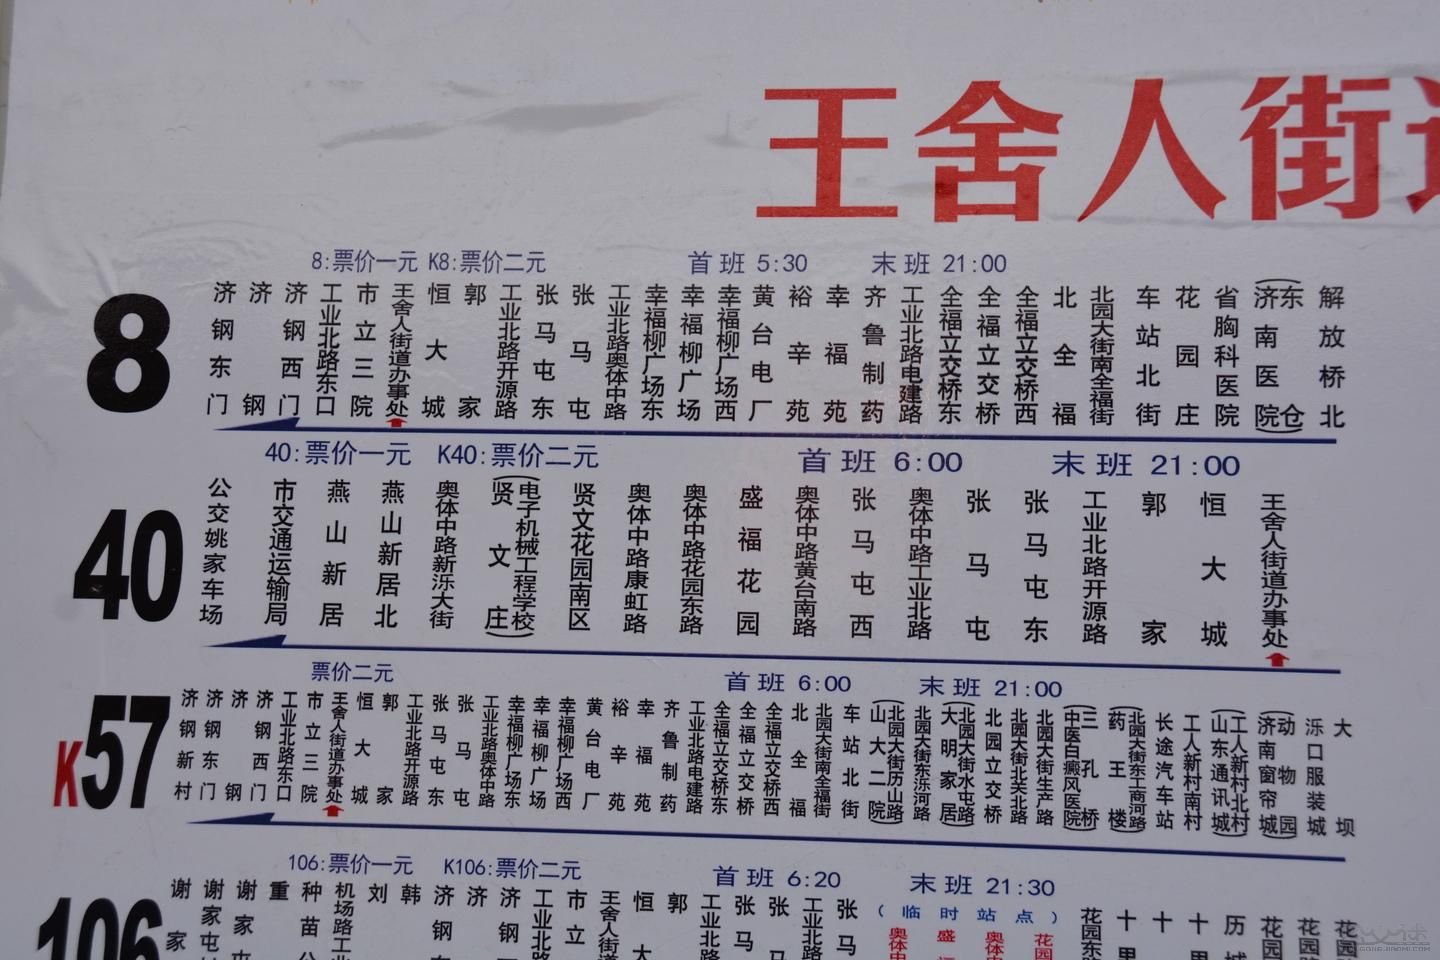 王舍人街
8:票价一元 K8:票价二元 首班 5:30 末班 21:00
8
济钢东门
济钢
济钢西门
工业北路东口
市立三院
王舍人街道办事处
恒大城
郭家
工业北路开源路
张马屯东
张马屯
工业北路奥体中路
幸福柳广场东
幸福柳广场
幸福柳广场西
黄台电厂
裕辛苑
幸福苑
齐鲁制药
工业北路电建路
全福立交桥东
全福立交桥
全福立交桥西
北全福
北园大街南全福街
车站北街
花园庄
省胸科医院
济南医院(东仓)
解放桥北
40:票价一元 K40:票价二元 首班 6:00 末班 21:00
40
公交姚家车场
市交通运输局
燕山新居
燕山新居北
奥体中路新泺大街
贤文庄(电子机械工程学校)
贤文花园南区
奥体中路康虹路
奥体中路花园东路
盛福花园
奥体中路黄台南路
张马屯西
奥体中路工业北路
张马屯
张马屯东
工业北路开源路
郭家
恒大城
王舍人街道办事处
票价二元 首班 6:00 末班 21:00
K57
济钢新村
济钢东门
济钢
济钢西门
工业北路东口
市立三院
王舍人街道办事处
恒大城
郭家
工业北路开源路
张马屯东
张马屯
工业北路奥体中路
幸福柳广场东
幸福柳广场
幸福柳广场西
黄台电厂
裕辛苑
幸福苑
齐鲁制药
工业北路电建路
全福立交桥东
全福立交桥
全福立交桥西
北全福
北园大街南全福街
车站北街
山大二院(北园大街历山路)
北园大街东泺河路
大明家居(北园大街水屯路)
北园立交桥
北园大街北关北路
北园大街生产路
三孔桥(中医白癜风医院)
药王楼(北园大街东工商河路)
长途汽车站
工人新村南村
工人新村北村(山东通讯城)
动物园(济南窗帘城)
泺口服装城
大坝
106:票价一元 K106:票价二元 首班 6:20 末班 21:30
106
谢家
谢家屯
谢家屯
重
种苗公
机场路工
刘
韩
济钢东
济
济钢
工业北
市立
王舍人街
恒大
郭
工业北
张马
张
工业北
张马
(临时站点)
奥体
盛
奥体
花园
花园东
十里
十
十里
历城
花园
花园
花园
GONGJIAOMI.COM